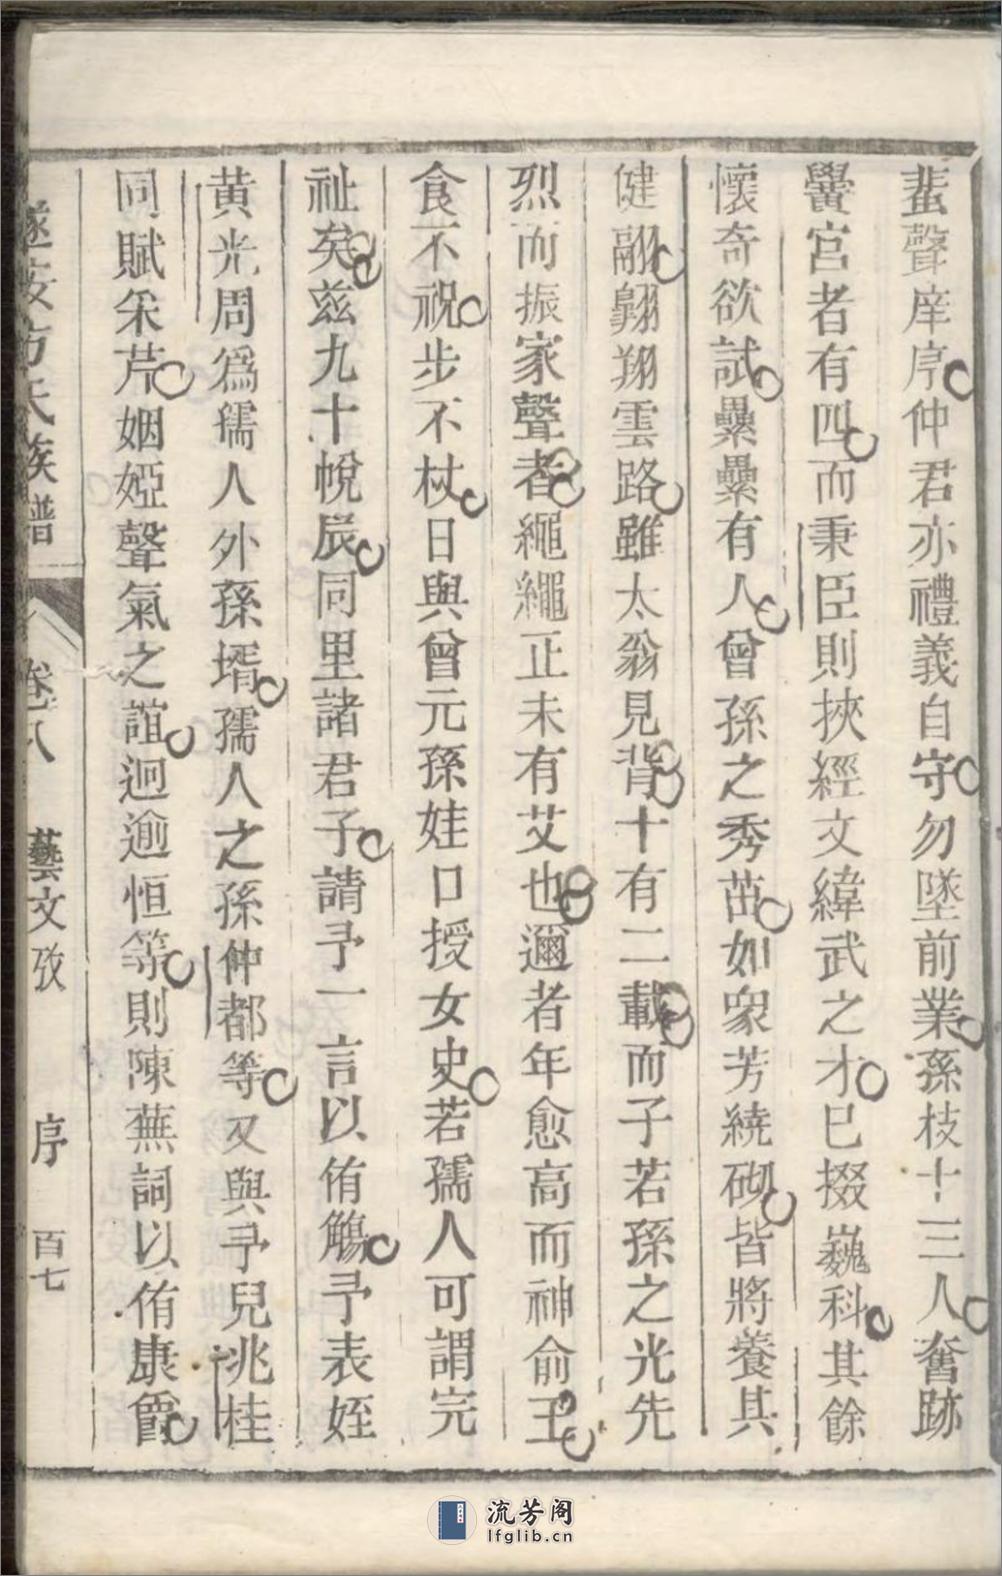 蜚聲庠序仲君亦禮義自守勿墜前業孫枝十三人奮跡
黌宮者有四而秉臣則挾經文緯武之才已掇巍科其餘
懷奇欲試纍纍有人曾孫之秀茁如眾芳繞砌皆將養其
健翮翱翔雲路雖太翁見背十有二載而子若孫之光先
烈而振家聲者繩繩正未有艾也邇者年愈高而神俞王
食不祝步不杖日與曾元孫娃口授女史若孺人可謂完
祉矣兹九十帨辰同里諸君子請予一言以侑觴予表姪
黄光周爲孺人外孫壻孺人之孫仲都等又與予兒兆桂
同賦采芹姻婭聲氣之誼迥逾恒等則陳蕪詞以侑康爵
遂安方氏族譜 卷八 藝文攷 序 百七
流芳阁
lfglib.cn